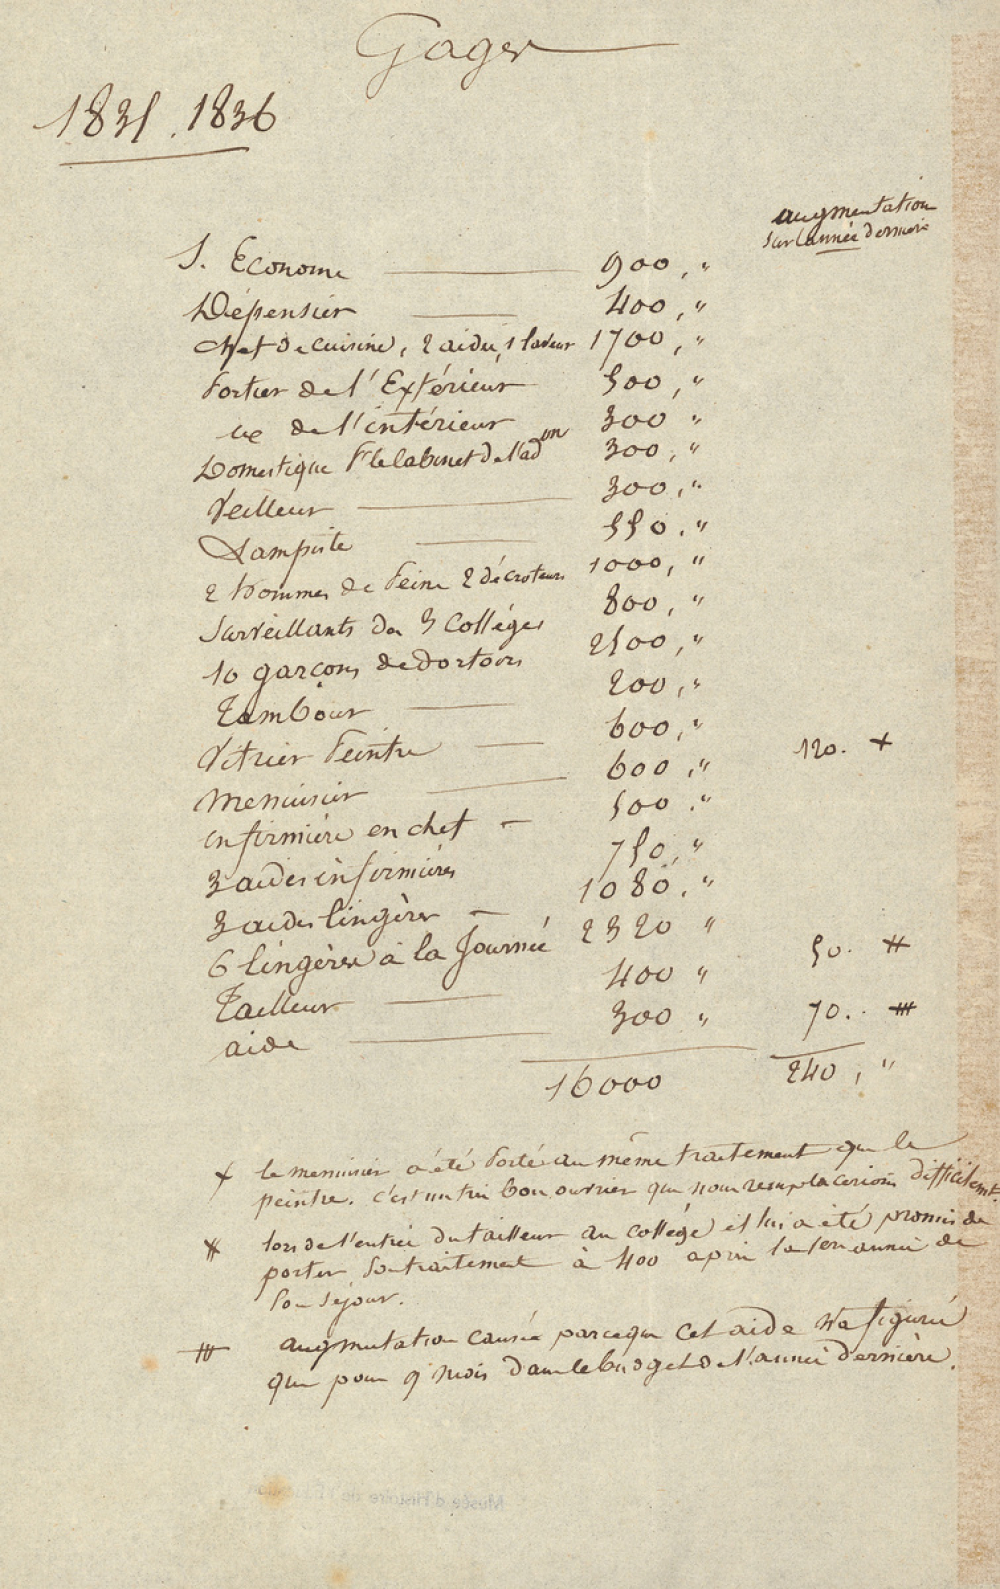 Gages
1835. 1836
augmentation
sur l'année dernière
S. Econome 900, "
Dépensier 400, "
chef de cuisine, 2 aides, 1 laveur 1700, "
Portier de l'Extérieur 500, "
de l'intérieur 300 "
Domestique Pr le Cabinet de l'adon 300, "
Veilleur 300, "
Lampiste 550. "
2 hommes de Peine 2 décroteurs 1000, "
Surveillants des 3 Collèges 800, "
10 garçons de dortoirs 2500, "
Tambour 200, "
Vitrier Peintre 600, "
Menuisier 600, " 120. +
infirmière en chef 500 . "
3 aides infirmières 750, "
3 aides lingères 1080, "
6 lingères à la Journée 2320 "
Tailleur 400 " 50. ++
aide 300 " 70. . +++
16000 240, "
+ le menuisier a été Porté au même traitement que le
peintre. c'est un très bon ouvrier que nous remplacerions difficilemt.
++ lors de l'entrée du tailleur au collège il lui a été promis de
porter son traitement à 400 après la 1ère année de
son séjour.
+++ augmentation causée parceque cet aide n'a figuré
que pour 9 mois dans le budget de l'année dernière.
Musée d'Histoire de l'Education